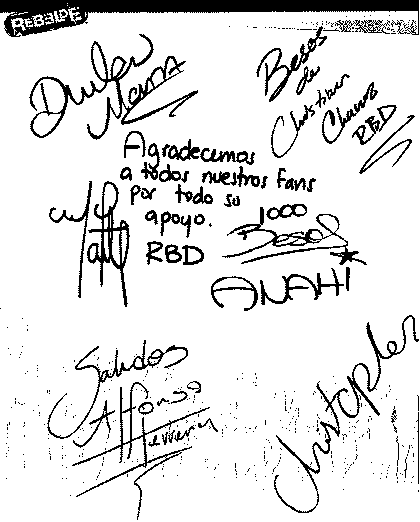 REBELDE
Dulce
María
Besos
de
Christian
Chavez
RBD
Agradecemos
a todos nuestros fans
por todo su
apoyo.
RBD
1000
Besos
ANAHI
Saludos
Alfonso
Herrera
Christopher